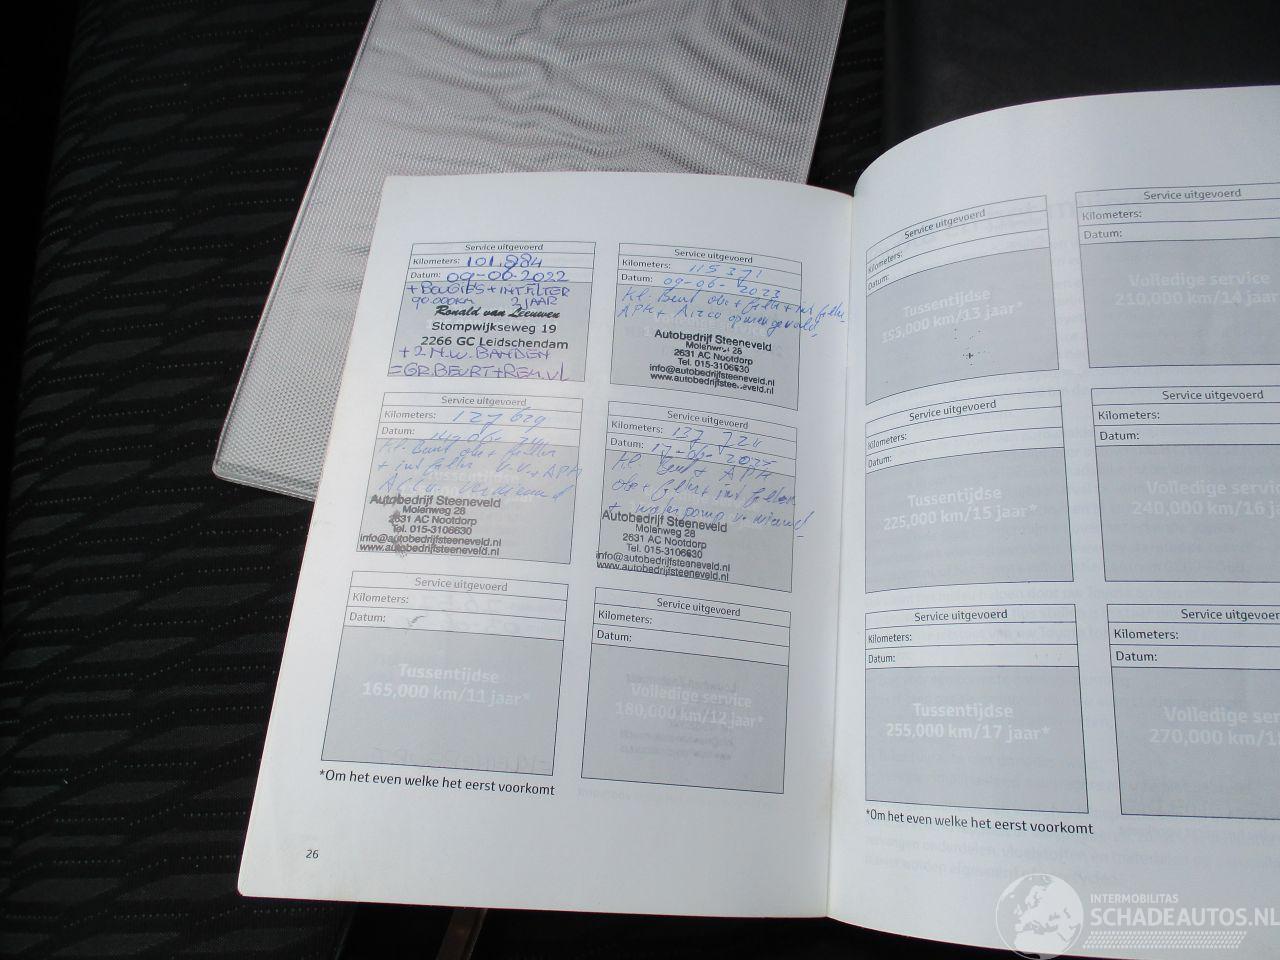 Service uitgevoerd
Kilometers: 101.984
Datum: 09-06-2022
+ BOUGIES + INT FILTER
90.000KM 2 JAAR
Ronald van Leeuwen
Stompwijkseweg 19
2266 GC Leidschendam
+ 2 N.W. BANDEN
= GR.BEURT + REM.VL
Service uitgevoerd
Kilometers: 115 371
Datum: 09-06-2023
Kl. Beurt olie + filter + int filter
APK + Airco
Autobedrijf Steeneveld
Molenweg 28
2631 AC Nootdorp
Tel. 015-3106630
info@autobedrijfsteeneveld.nl
www.autobedrijfsteeneveld.nl
Service uitgevoerd
Kilometers: 127 629
Datum:
Kl. Beurt olie + filter
+ int filter + APK
Autobedrijf Steeneveld
Molenweg 28
2631 AC Nootdorp
Tel. 015-3106630
info@autobedrijfsteeneveld.nl
www.autobedrijfsteeneveld.nl
Service uitgevoerd
Kilometers: 137 724
Datum: 17-06-2025
Kl. Beurt + APK
olie + filter + int filter
+ waterpomp
Autobedrijf Steeneveld
Molenweg 28
2631 AC Nootdorp
Tel. 015-3106630
info@autobedrijfsteeneveld.nl
www.autobedrijfsteeneveld.nl
Service uitgevoerd
Kilometers:
Datum:
Tussentijdse
165,000 km/11 jaar*
Service uitgevoerd
Kilometers:
Datum:
Volledige service
180,000 km/12 jaar*
*Om het even welke het eerst voorkomt
26
Service uitgevoerd
Kilometers:
Datum:
Tussentijdse
195,000 km/13 jaar*
Service uitgevoerd
Kilometers:
Datum:
Volledige service
210,000 km/14 jaar
Service uitgevoerd
Kilometers:
Datum:
Tussentijdse
225,000 km/15 jaar*
Service uitgevoerd
Kilometers:
Datum:
Volledige servic
240,000 km/16 ja
Service uitgevoerd
Kilometers:
Datum:
Tussentijdse
255,000 km/17 jaar*
Service uitgevoerd
Kilometers:
Datum:
Volledige ser
270,000 km/1
*Om het even welke het eerst voorkomt
INTERMOBILITAS
SCHADEAUTOS.NL